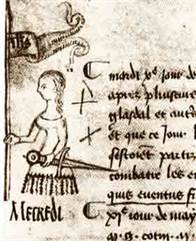 Ihs
mardi xe jour de
apres plusieurs
glasdal et autre
et que ce jour
sestoient
combatre les en
quis eventus f
Mercredi
xie jour de may